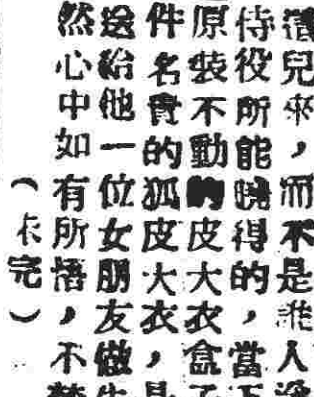 清兒來，而不是非人
侍役所能曉得的，當下
原裝不動的皮大衣盒子
件名貴的狐皮大衣，是
送給他一位女朋友做生
然心中如有所悟，不禁
（未完）